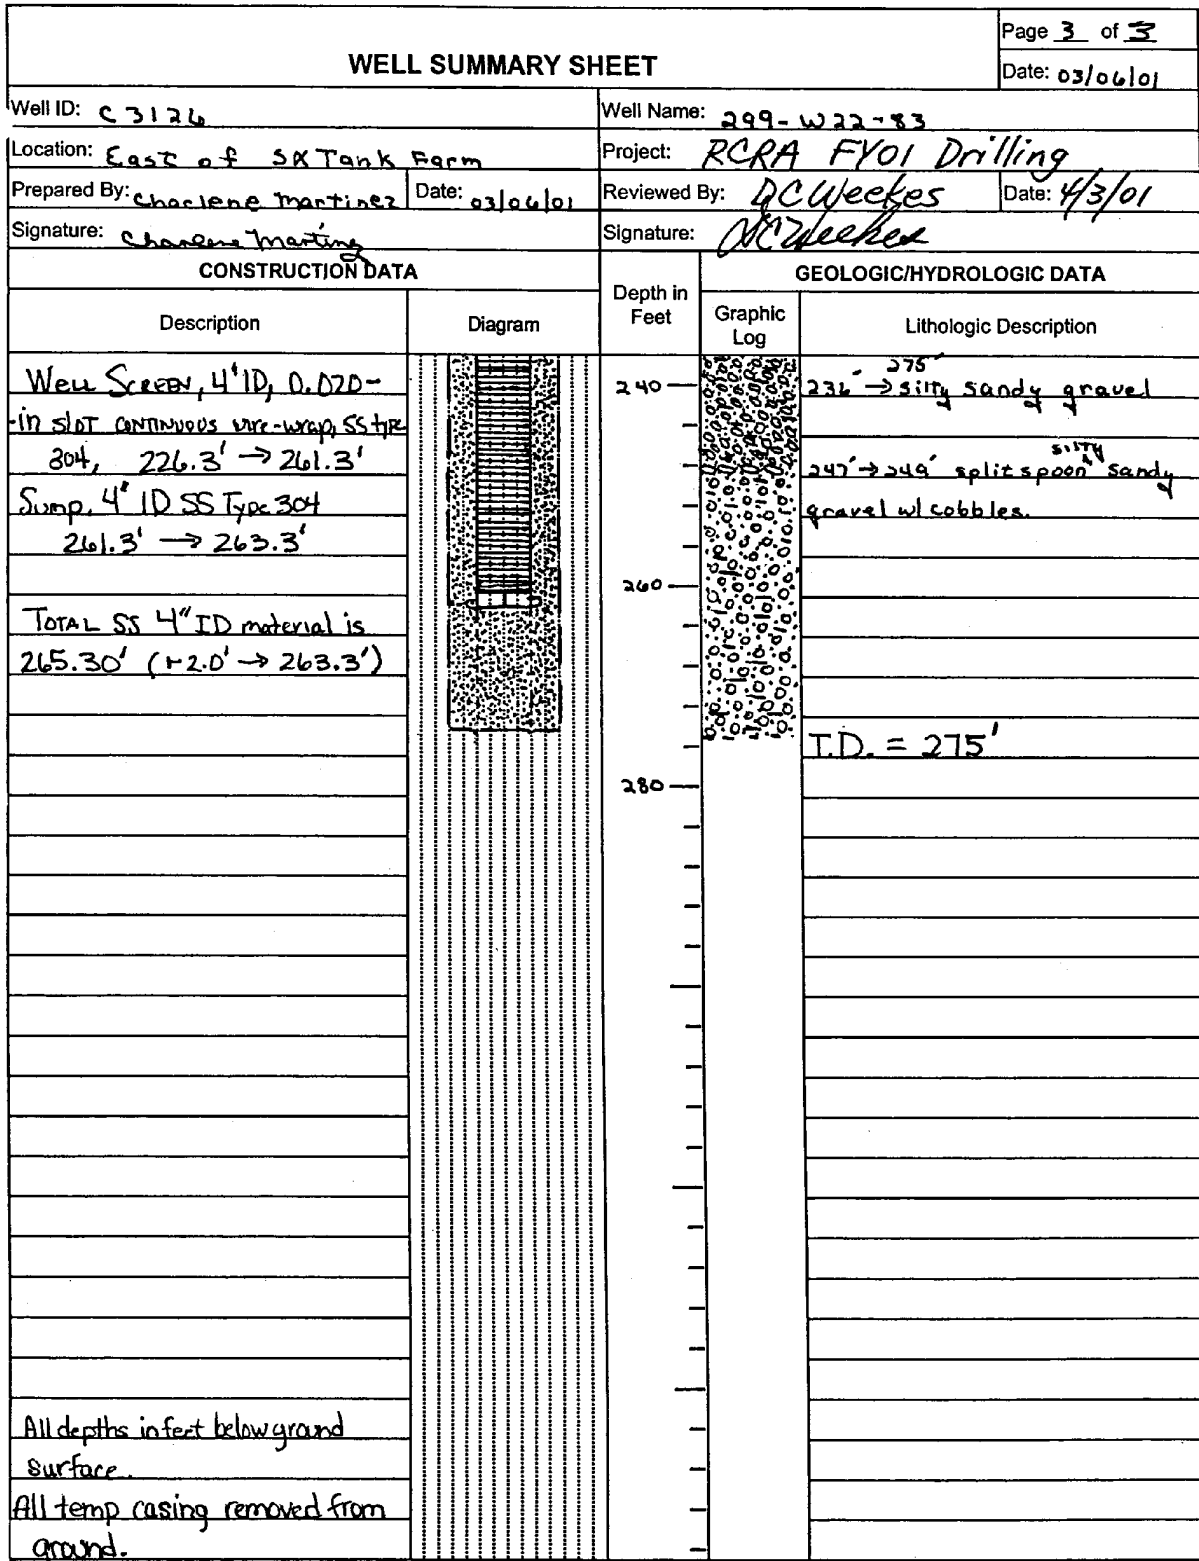 WELL SUMMARY SHEET
Page 3 of 3
Date: 03/06/01
Well ID: C3126
Well Name: 299-W22-83
Location: East of SX Tank Farm
Project: RCRA FY01 Drilling
Prepared By: Charlene Martinez
Date: 03/06/01
Reviewed By: DC Weekes
Date: 4/3/01
Signature: Charlene Martinez
Signature: DC Weekes
CONSTRUCTION DATA
Depth in
Feet
GEOLOGIC/HYDROLOGIC DATA
Description
Diagram
Graphic
Log
Lithologic Description
WELL SCREEN, 4" ID, 0.020-
-in slot continuous wire-wrap, SS type
304, 226.3' → 261.3'
Sump, 4" ID SS Type 304
261.3' → 263.3'
TOTAL SS 4" ID material is
265.30' (+2.0' → 263.3')
All depths in feet below ground
surface.
All temp casing removed from
ground.
240
260
280
275'
236' → silty sandy gravel
silty
247' → 249' split spoon sandy
gravel w/ cobbles.
T.D. = 275'